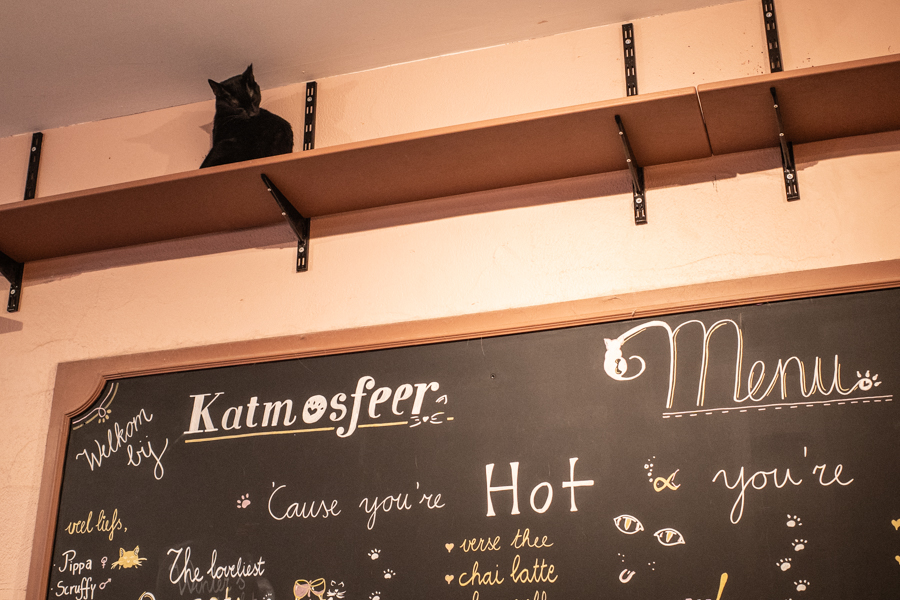 Welkom
bij
Katmosfeer
Menu
'Cause you're Hot
you're
veel liefs,
Pippa ♀
Scruffy ♂
The loveliest
verse thee
chai latte